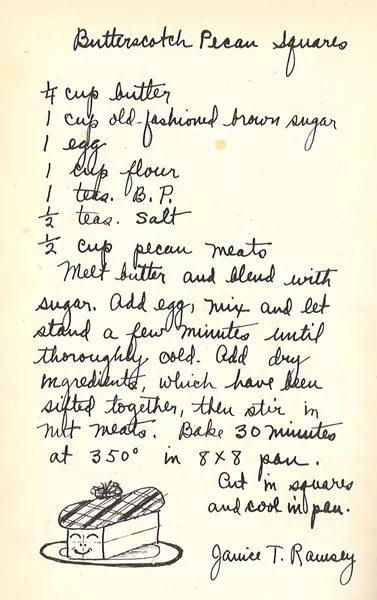 Butterscotch Pecan Squares
¼ cup butter
1 cup old-fashioned brown sugar
1 egg
1 cup flour
1 teas. B.P.
½ teas. salt
½ cup pecan meats
Melt butter and blend with
sugar. Add egg, mix and let
stand a few minutes until
thoroughly cold. Add dry
ingredients, which have been
sifted together, then stir in
nut meats. Bake 30 minutes
at 350° in 8x8 pan.
Cut in squares
and cool in pan.
Janice T. Ramsey